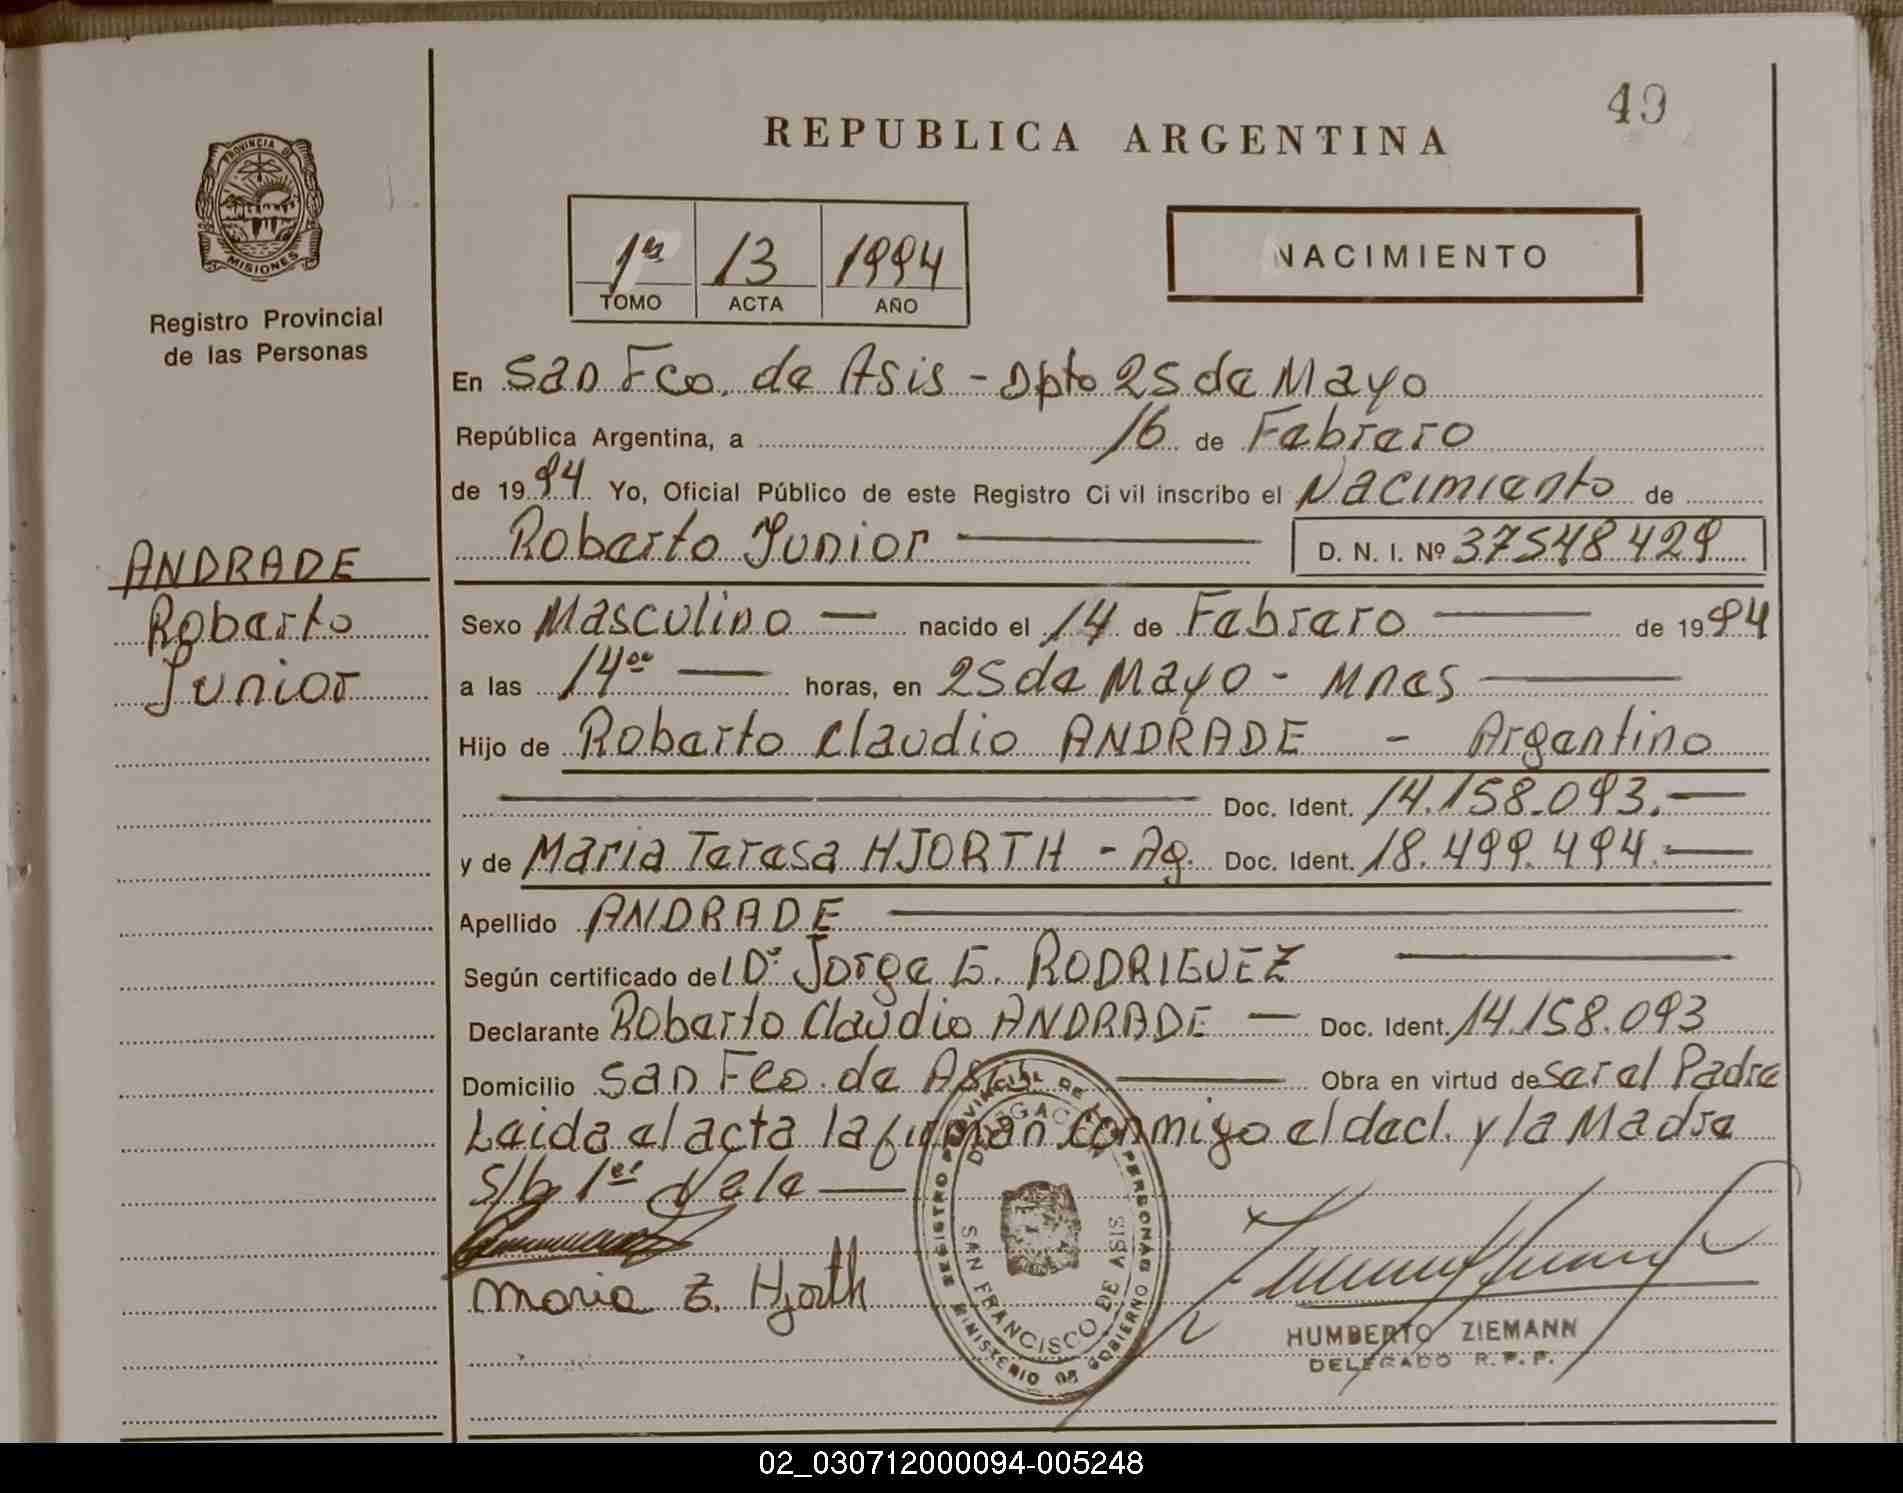 49
REPUBLICA ARGENTINA
PROVINCIA DE
MISIONES
Registro Provincial
de las Personas
1er 13 1994
TOMO ACTA AÑO
NACIMIENTO
En San Fco. de Asis - Dpto 25 de Mayo
República Argentina, a 16 de Febrero
de 1994 Yo, Oficial Público de este Registro Civil inscribo el Nacimiento de
Roberto Junior D. N. I. Nº 37548429
ANDRADE
Roberto
Junior
Sexo Masculino nacido el 14 de Febrero de 1994
a las 14oo horas, en 25 de Mayo - Mnes
Hijo de Roberto Claudio ANDRADE - Argentino
Doc. Ident. 14.158.093.
y de Maria Teresa HJORTH - Ag. Doc. Ident. 18.499.494.
Apellido ANDRADE
Según certificado del Dr. Jorge E. RODRIGUEZ
Declarante Roberto Claudio ANDRADE Doc. Ident. 14.158.093
Domicilio San Fco. de Asis Obra en virtud de Ser el Padre
Leida el acta la firman conmigo el decl. y la Madre
S/b 1er Vale
Maria T. Hjorth
REGISTRO PROVINCIAL DE LAS PERSONAS
DELEGACION
SAN FRANCISCO DE ASIS
MINISTERIO DE GOBIERNO
HUMBERTO ZIEMANN
DELEGADO R. P. P.
02_030712000094-005248